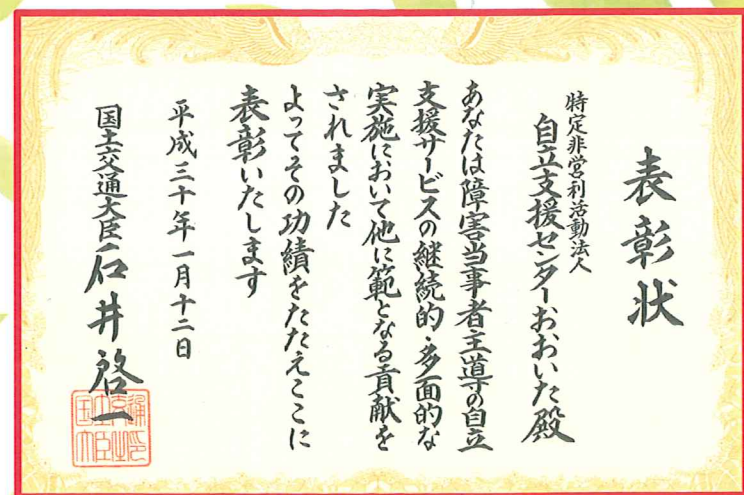 表彰状
特定非営利活動法人
自立支援センターおおいた殿
あなたは障害当事者主導の自立
支援サービスの継続的・多面的な
実施において他に範となる貢献を
されました
よってその功績をたたえここに
表彰いたします
平成三十年一月十二日
国土交通大臣 石井啓一